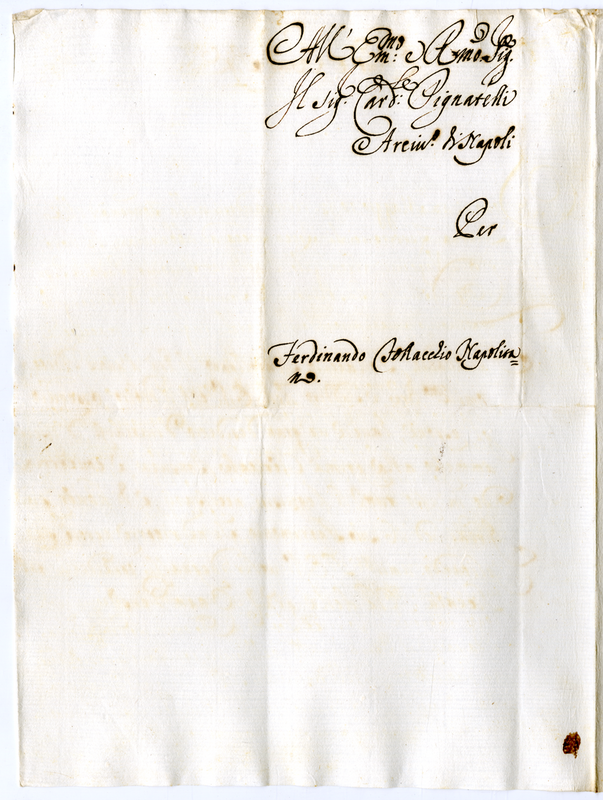 All' Em:mo e R.mo Sig.re
Il Sig.r Card:le Pignatelli
Arciu.o di Napoli
Per
Ferdinando Napolita=
no.